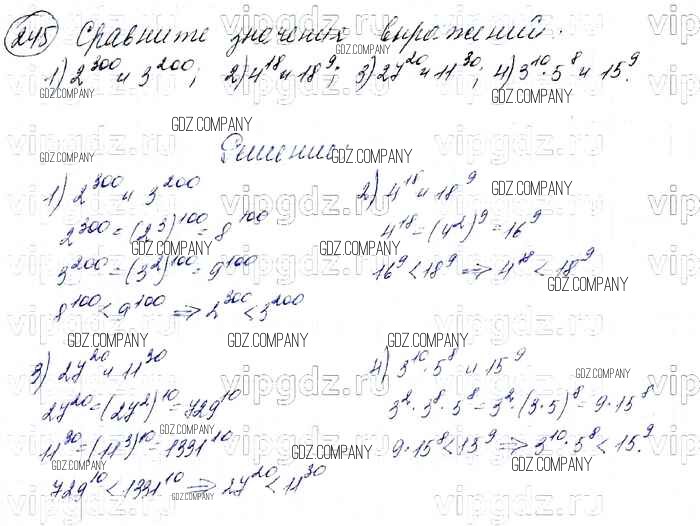 245 Сравните значения выражений.
1) 2^300 и 3^200; 2) 4^18 и 18^9; 3) 27^20 и 11^30; 4) 3^10 · 5^8 и 15^9.
Решение:
1) 2^300 и 3^200
2^300 = (2^3)^100 = 8^100
3^200 = (3^2)^100 = 9^100
8^100 < 9^100 ⇒ 2^300 < 3^200
2) 4^18 и 18^9
4^18 = (4^2)^9 = 16^9
16^9 < 18^9 ⇒ 4^18 < 18^9
3) 27^20 и 11^30
27^20 = (27^2)^10 = 729^10
11^30 = (11^3)^10 = 1331^10
729^10 < 1331^10 ⇒ 27^20 < 11^30
4) 3^10 · 5^8 и 15^9
3^2 · 3^8 · 5^8 = 3^2 · (3 · 5)^8 = 9 · 15^8
9 · 15^8 < 15^9 ⇒ 3^10 · 5^8 < 15^9.
GDZ.COMPANY
vipgdz.ru